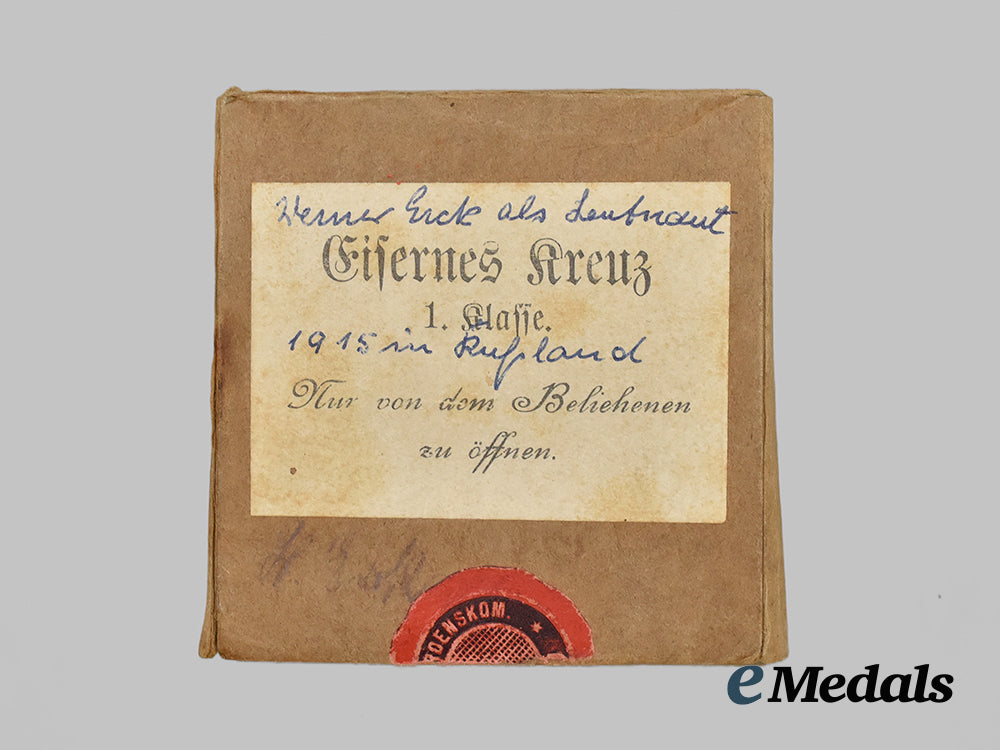 Werner Erck als Leutnant
Eisernes Kreuz
1. Klasse.
1915 in Rußland
Nur von dem Beliehenen
zu öffnen.
RDENSKOM. *
eMedals